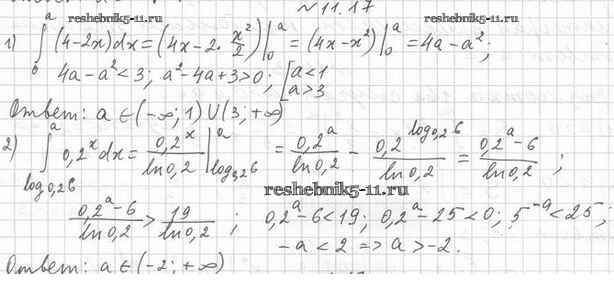 №11.17
reshebnik5-11.ru
1) ∫₀ᵃ (4-2x)dx = (4x-2·x²/2)|₀ᵃ = (4x-x²)|₀ᵃ = 4a-a²;
4a-a²<3; a²-4a+3>0; [a<1 a>3
Ответ: a ∈ (-∞; 1) U (3; +∞)
2) ∫_{log_{0,2}6}^{a} 0,2ˣ dx = 0,2ˣ/ln0,2 |_{log_{0,2}6}^{a} = 0,2ᵃ/ln0,2 - 0,2^{log_{0,2}6}/ln0,2 = (0,2ᵃ-6)/ln0,2 ;
reshebnik5-11.ru
(0,2ᵃ-6)/ln0,2 > 19/ln0,2 ; 0,2ᵃ-6<19; 0,2ᵃ-25<0; 5⁻ᵃ<25;
-a<2 => a>-2.
Ответ: a ∈ (-2; +∞)